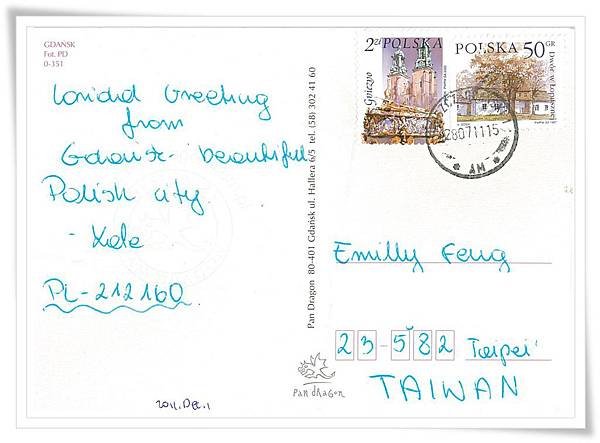 GDAŃSK
Fot. PD
0-351
Greeting
from
Gdańsk - beautiful
Polish city.
PL-212160
2011.Dec.1
Pan Dragon 80-401 Gdańsk ul. Hallera 6/5 tel. (58) 302 41 60
2zł POLSKA
Gniezno
POLSKA 50GR
Dwór w Łopusznej
280711 15
* AM *
Emilly Feng
23-582 Taipei
TAIWAN
pan dragon